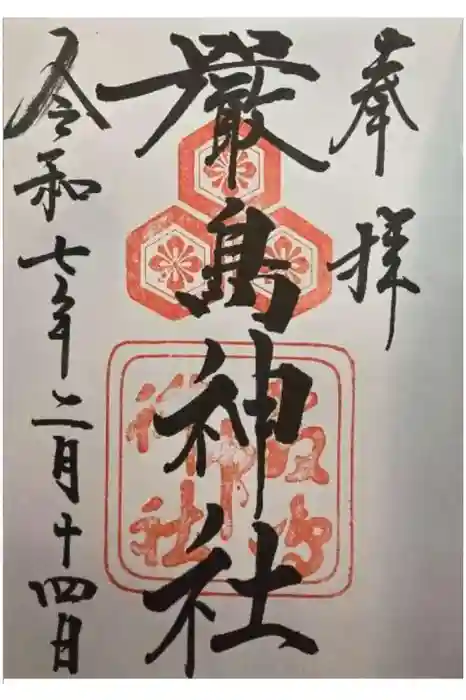 奉拝
嚴島神社
令和七年二月十四日